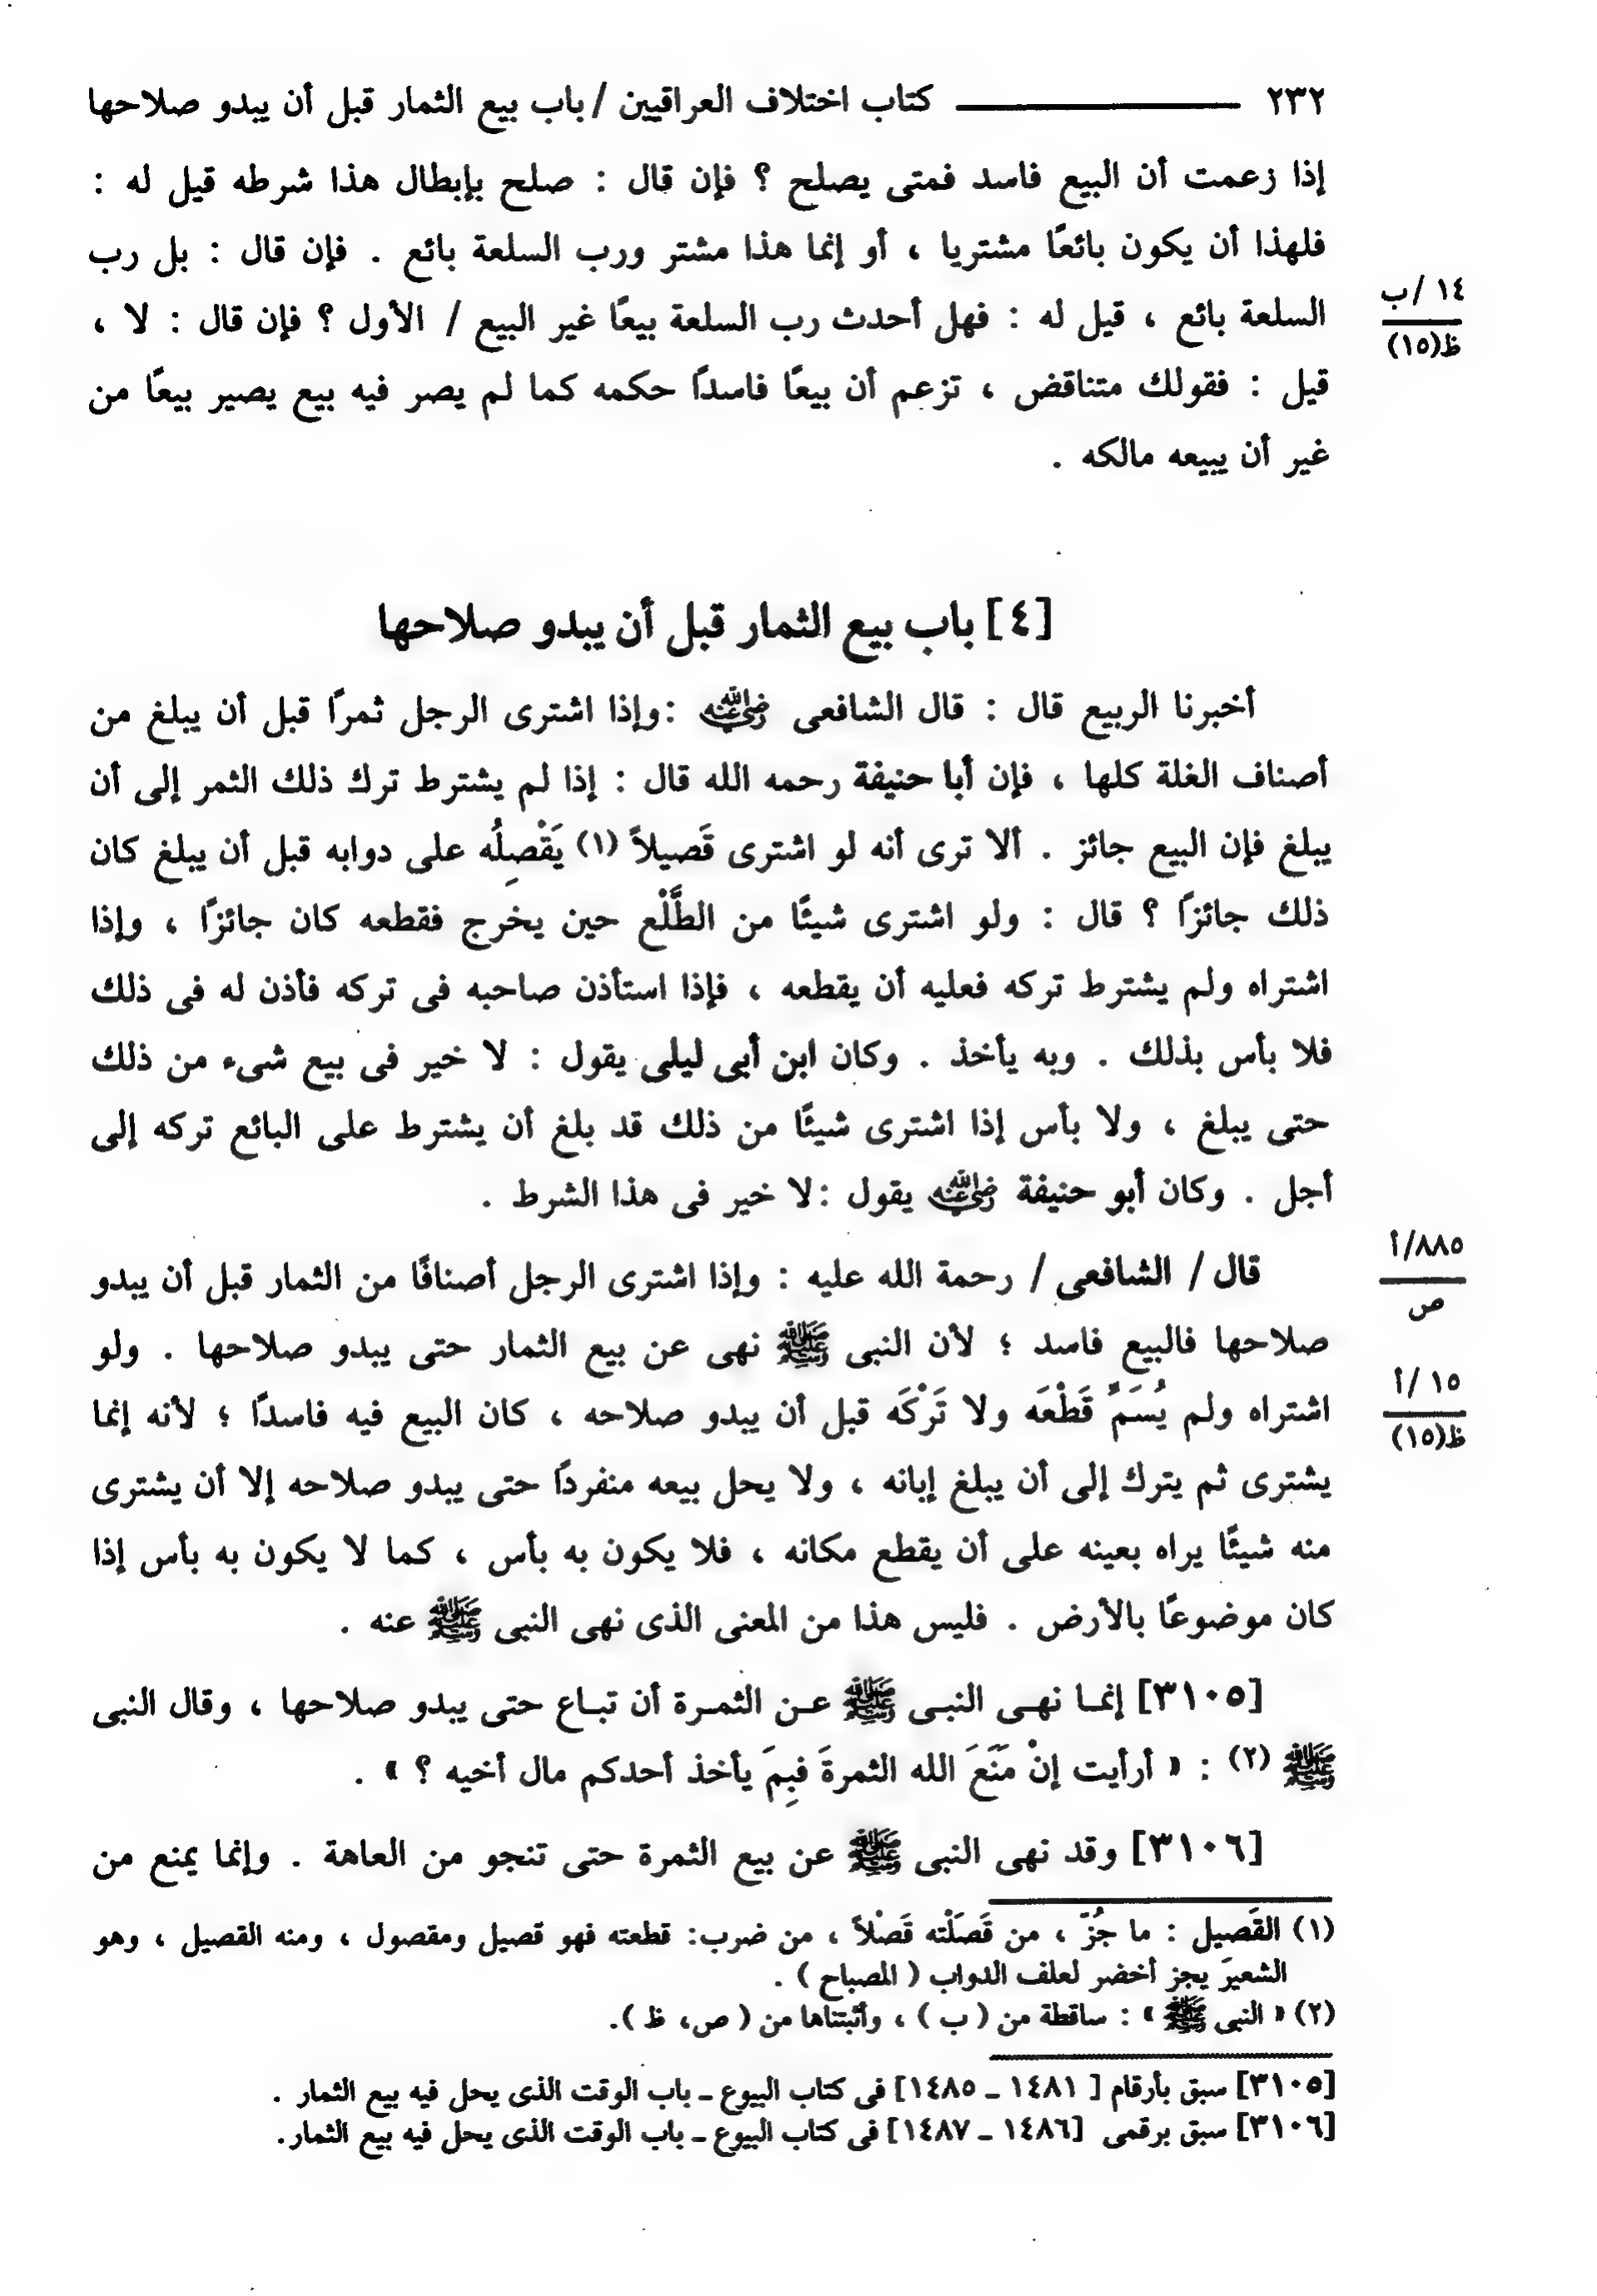 ٢٣٢ ــــــــ كتاب اختلاف العراقيين / باب بيع الثمار قبل أن يبدو صلاحها
إذا زعمت أن البيع فاسد فمتى يصلح ؟ فإن قال : صلح بإبطال هذا شرطه قيل له :
فلهذا أن يكون بائعًا مشتريا ، أو إنما هذا مشتر ورب السلعة بائع . فإن قال : بل رب
السلعة بائع ، قيل له : فهل أحدث رب السلعة بيعًا غير البيع / الأول ؟ فإن قال : لا ،
١٤ /ب
ظ(١٥)
قيل : فقولك متناقض ، تزعم أن بيعًا فاسدًا حكمه كما لم يصر فيه بيع يصير بيعًا من
غير أن يبيعه مالكه .
[٤] باب بيع الثمار قبل أن يبدو صلاحها
أخبرنا الربيع قال : قال الشافعى رضي الله عنه :وإذا اشترى الرجل ثمرًا قبل أن يبلغ من
أصناف الغلة كلها ، فإن أبا حنيفة رحمه الله قال : إذا لم يشترط ترك ذلك الثمر إلى أن
يبلغ فإن البيع جائز . ألا ترى أنه لو اشترى قَصيلاً (١) يَقْصِلُه على دوابه قبل أن يبلغ كان
ذلك جائزًا ؟ قال : ولو اشترى شيئًا من الطَّلْع حين يخرج فقطعه كان جائزًا ، وإذا
اشتراه ولم يشترط تركه فعليه أن يقطعه ، فإذا استأذن صاحبه فى تركه فأذن له فى ذلك
فلا بأس بذلك . وبه يأخذ . وكان ابن أبى ليلى يقول : لا خير فى بيع شىء من ذلك
حتى يبلغ ، ولا بأس إذا اشترى شيئًا من ذلك قد بلغ أن يشترط على البائع تركه إلى
أجل . وكان أبو حنيفة رضي الله عنه يقول :لا خير فى هذا الشرط .
قال / الشافعى / رحمة الله عليه : وإذا اشترى الرجل أصنافًا من الثمار قبل أن يبدو
٨٨٥/أ
ص
صلاحها فالبيع فاسد ؛ لأن النبى ﷺ نهى عن بيع الثمار حتى يبدو صلاحها . ولو
١٥ /أ
ظ(١٥)
اشتراه ولم يُسَمِّ قَطْعَه ولا تَرْكَه قبل أن يبدو صلاحه ، كان البيع فيه فاسدًا ؛ لأنه إنما
يشترى ثم يترك إلى أن يبلغ إبانه ، ولا يحل بيعه منفردًا حتى يبدو صلاحه إلا أن يشترى
منه شيئًا يراه بعينه على أن يقطع مكانه ، فلا يكون به بأس ، كما لا يكون به بأس إذا
كان موضوعًا بالأرض . فليس هذا من المعنى الذى نهى النبى ﷺ عنه .
[٣١٠٥] إنما نهى النبى ﷺ عن الثمرة أن تباع حتى يبدو صلاحها ، وقال النبى
ﷺ (٢) : « أرأيت إنْ مَنَعَ الله الثمرةَ فبِمَ يأخذ أحدكم مال أخيه ؟ » .
[٣١٠٦] وقد نهى النبى ﷺ عن بيع الثمرة حتى تنجو من العاهة . وإنما يمنع من
(١) القَصيل : ما جُزّ ، من قَصَلْته قَصْلاً ، من ضرب: قطعته فهو قصيل ومقصول ، ومنه القصيل ، وهو
الشعيرَ يجز أخضر لعلف الدواب ( المصباح ) .
(٢) « النبى ﷺ » : ساقطة من ( ب ) ، وأثبتناها من ( ص، ظ ).
[٣١٠٥] سبق بأرقام [ ١٤٨١ ـ ١٤٨٥] فى كتاب البيوع ـ باب الوقت الذى يحل فيه بيع الثمار .
[٣١٠٦] سبق برقمى [١٤٨٦ ـ ١٤٨٧] فى كتاب البيوع ـ باب الوقت الذى يحل فيه بيع الثمار.